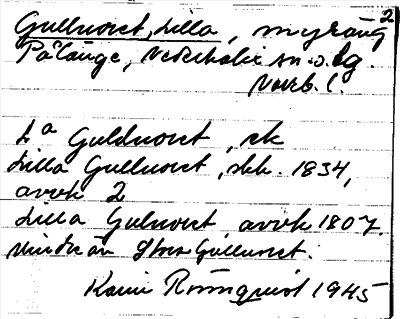 2
Gullmoret, Lilla, myräng
Pålänge, Nederkalix sn o. tg.
Norrb. l.
La Guldmoret, ek
Lilla Gullmoret, skk. 1834,
avvk 2
Lilla Gulmoret avvk 1807.
Mindre än Stora Gullmoret.
Karin Rönnquist 1945